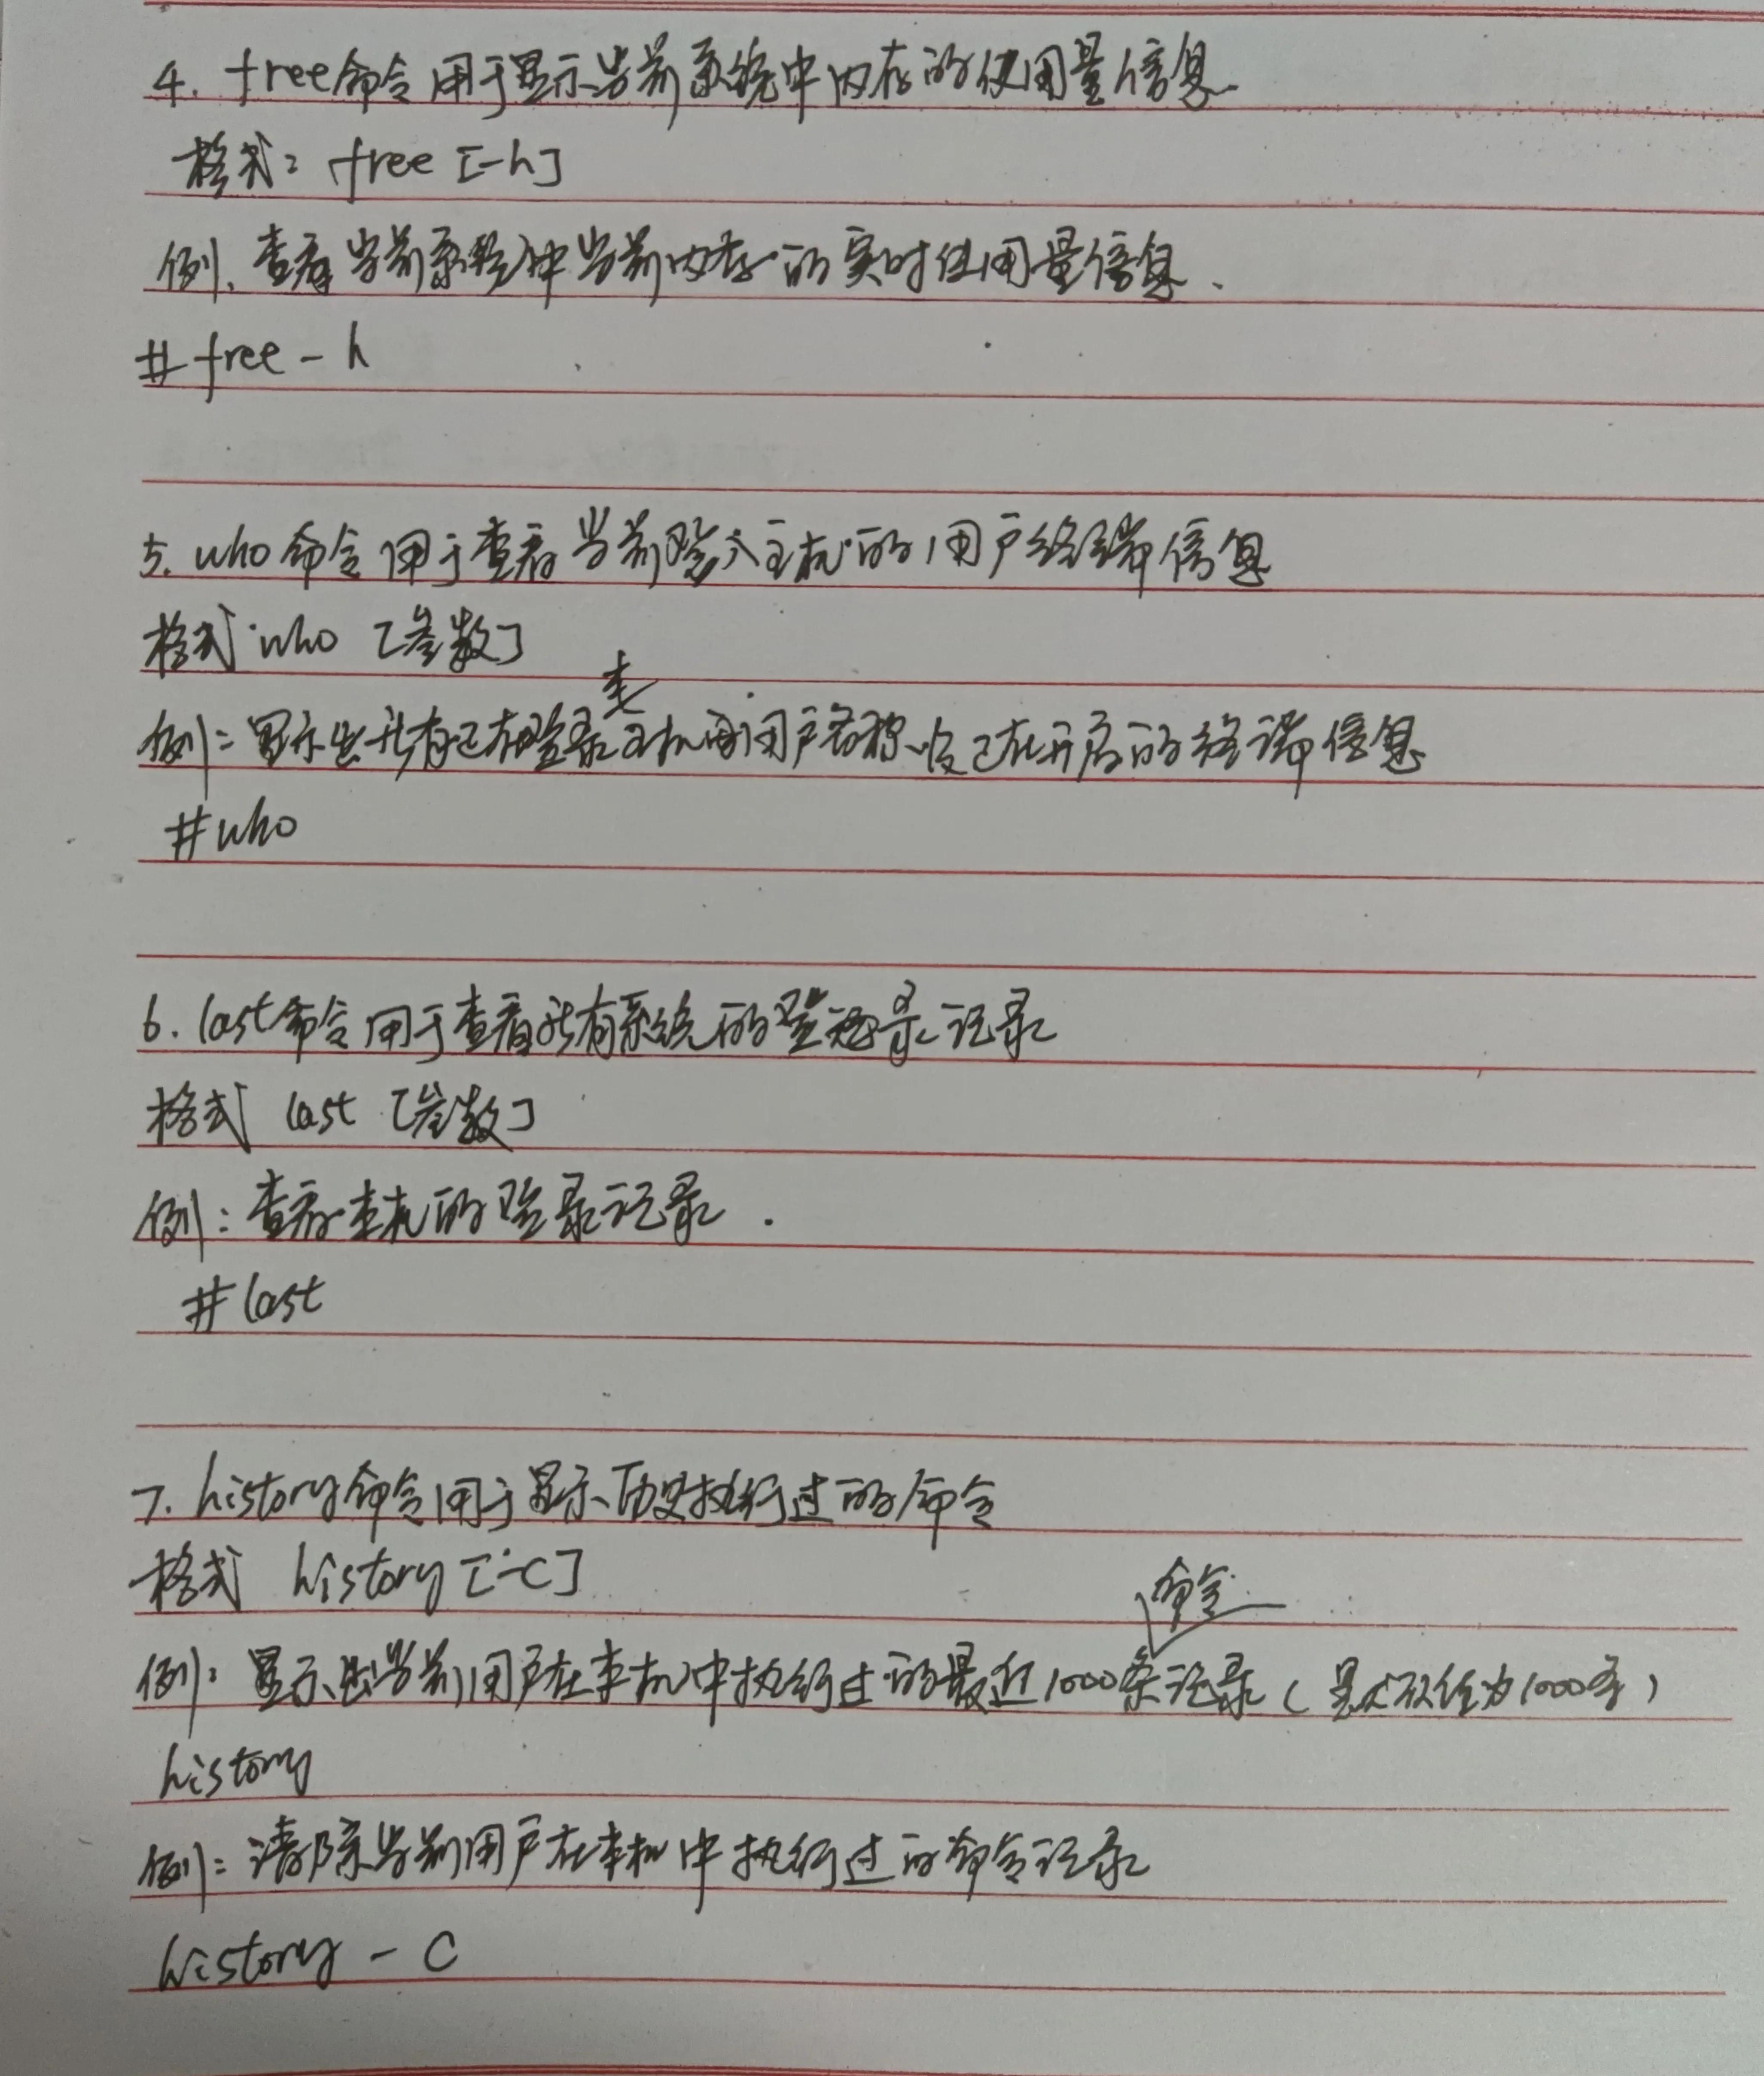 4. free命令用于显示当前系统中内存的使用量信息.
格式: free [-h]
例. 查看当前系统中当前内存的实时使用量信息.
# free - h
5. who命令用于查看当前登入主机的用户终端信息
格式:who [参数]
例: 显示出所有已在登录本主机用户名称以及已在开启的终端信息
#who
6. last命令用于查看所有系统的登录记录
格式 last [参数]
例: 查看本机的登录记录.
# last
7. history命令用于显示历史执行过的命令
格式 history [-c]
例: 显示出当前用户在本机中执行过的最近1000条命令记录(默认为1000条)
history
例: 清除当前用户在本机中执行过的命令记录
history - c